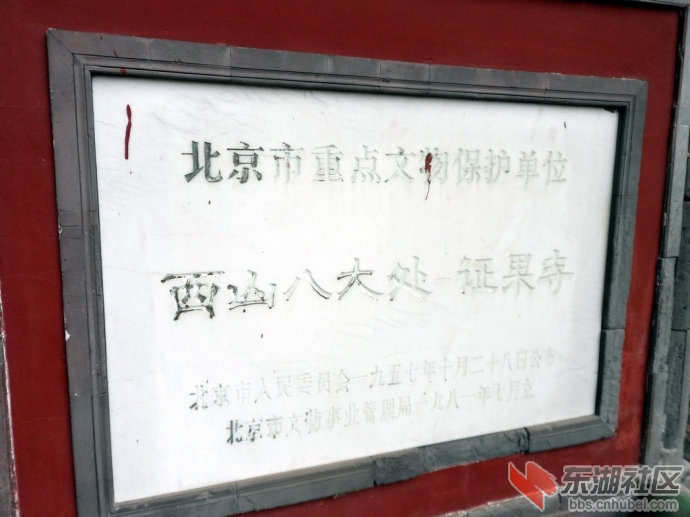 北京市重点文物保护单位
西山八大处-证果寺
北京市人民委员会一九五七年十月二十八日公布
北京市文物事业管理局一九八一年七月立
东湖社区
bbs.cnhubei.com